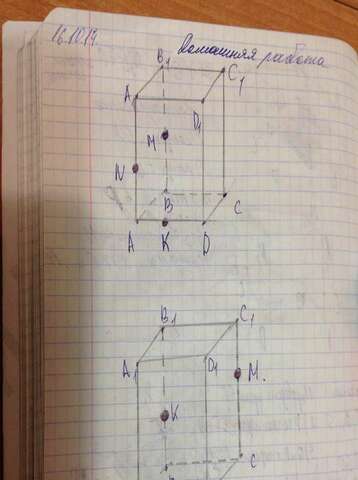 16.10.14 Домашняя работа
B₁ C₁
A D₁
M
N
B C
A K D
B₁ C₁
A₁ D₁ M.
K
C